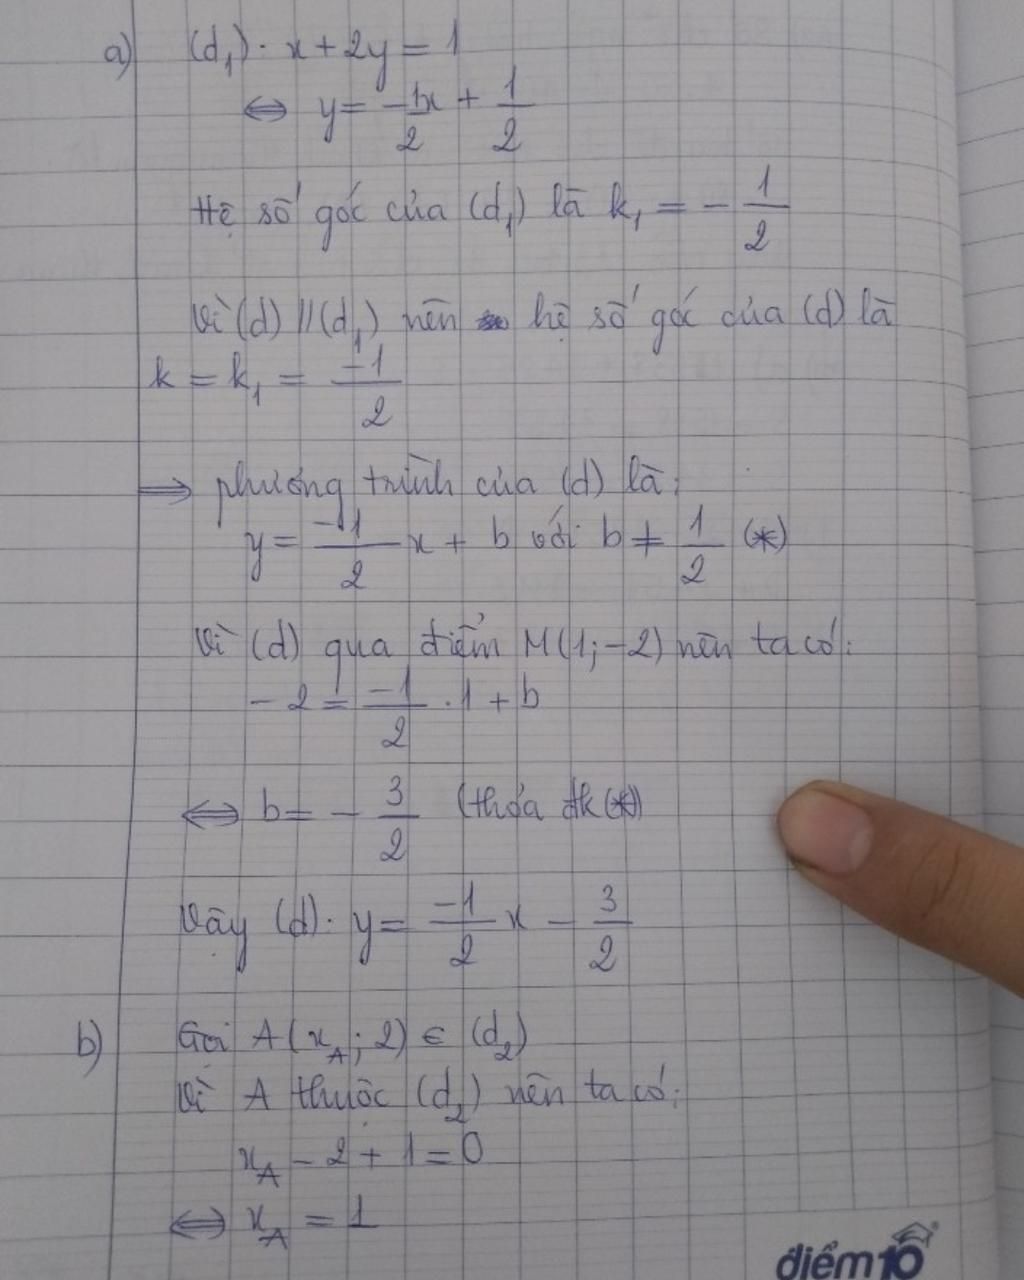 a) (d₁): x + 2y = 1
⇔ y = -1x/2 + 1/2
Hệ số góc của (d₁) là k₁ = - 1/2
Vì (d) // (d₁) nên hệ số góc của (d) là
k = k₁ = -1/2
⇒ phương trình của (d) là:
y = -1/2 x + b với b ≠ 1/2 (*)
Vì (d) qua điểm M(1; -2) nên ta có:
-2 = -1/2 . 1 + b
⇔ b = - 3/2 (thỏa đk (*))
Vậy (d): y = -1/2 x - 3/2
b) Gọi A(x_A; 2) ∈ (d₂)
Vì A thuộc (d₂) nên ta có:
x_A - 2 + 1 = 0
⇔ x_A = 1
điểm10